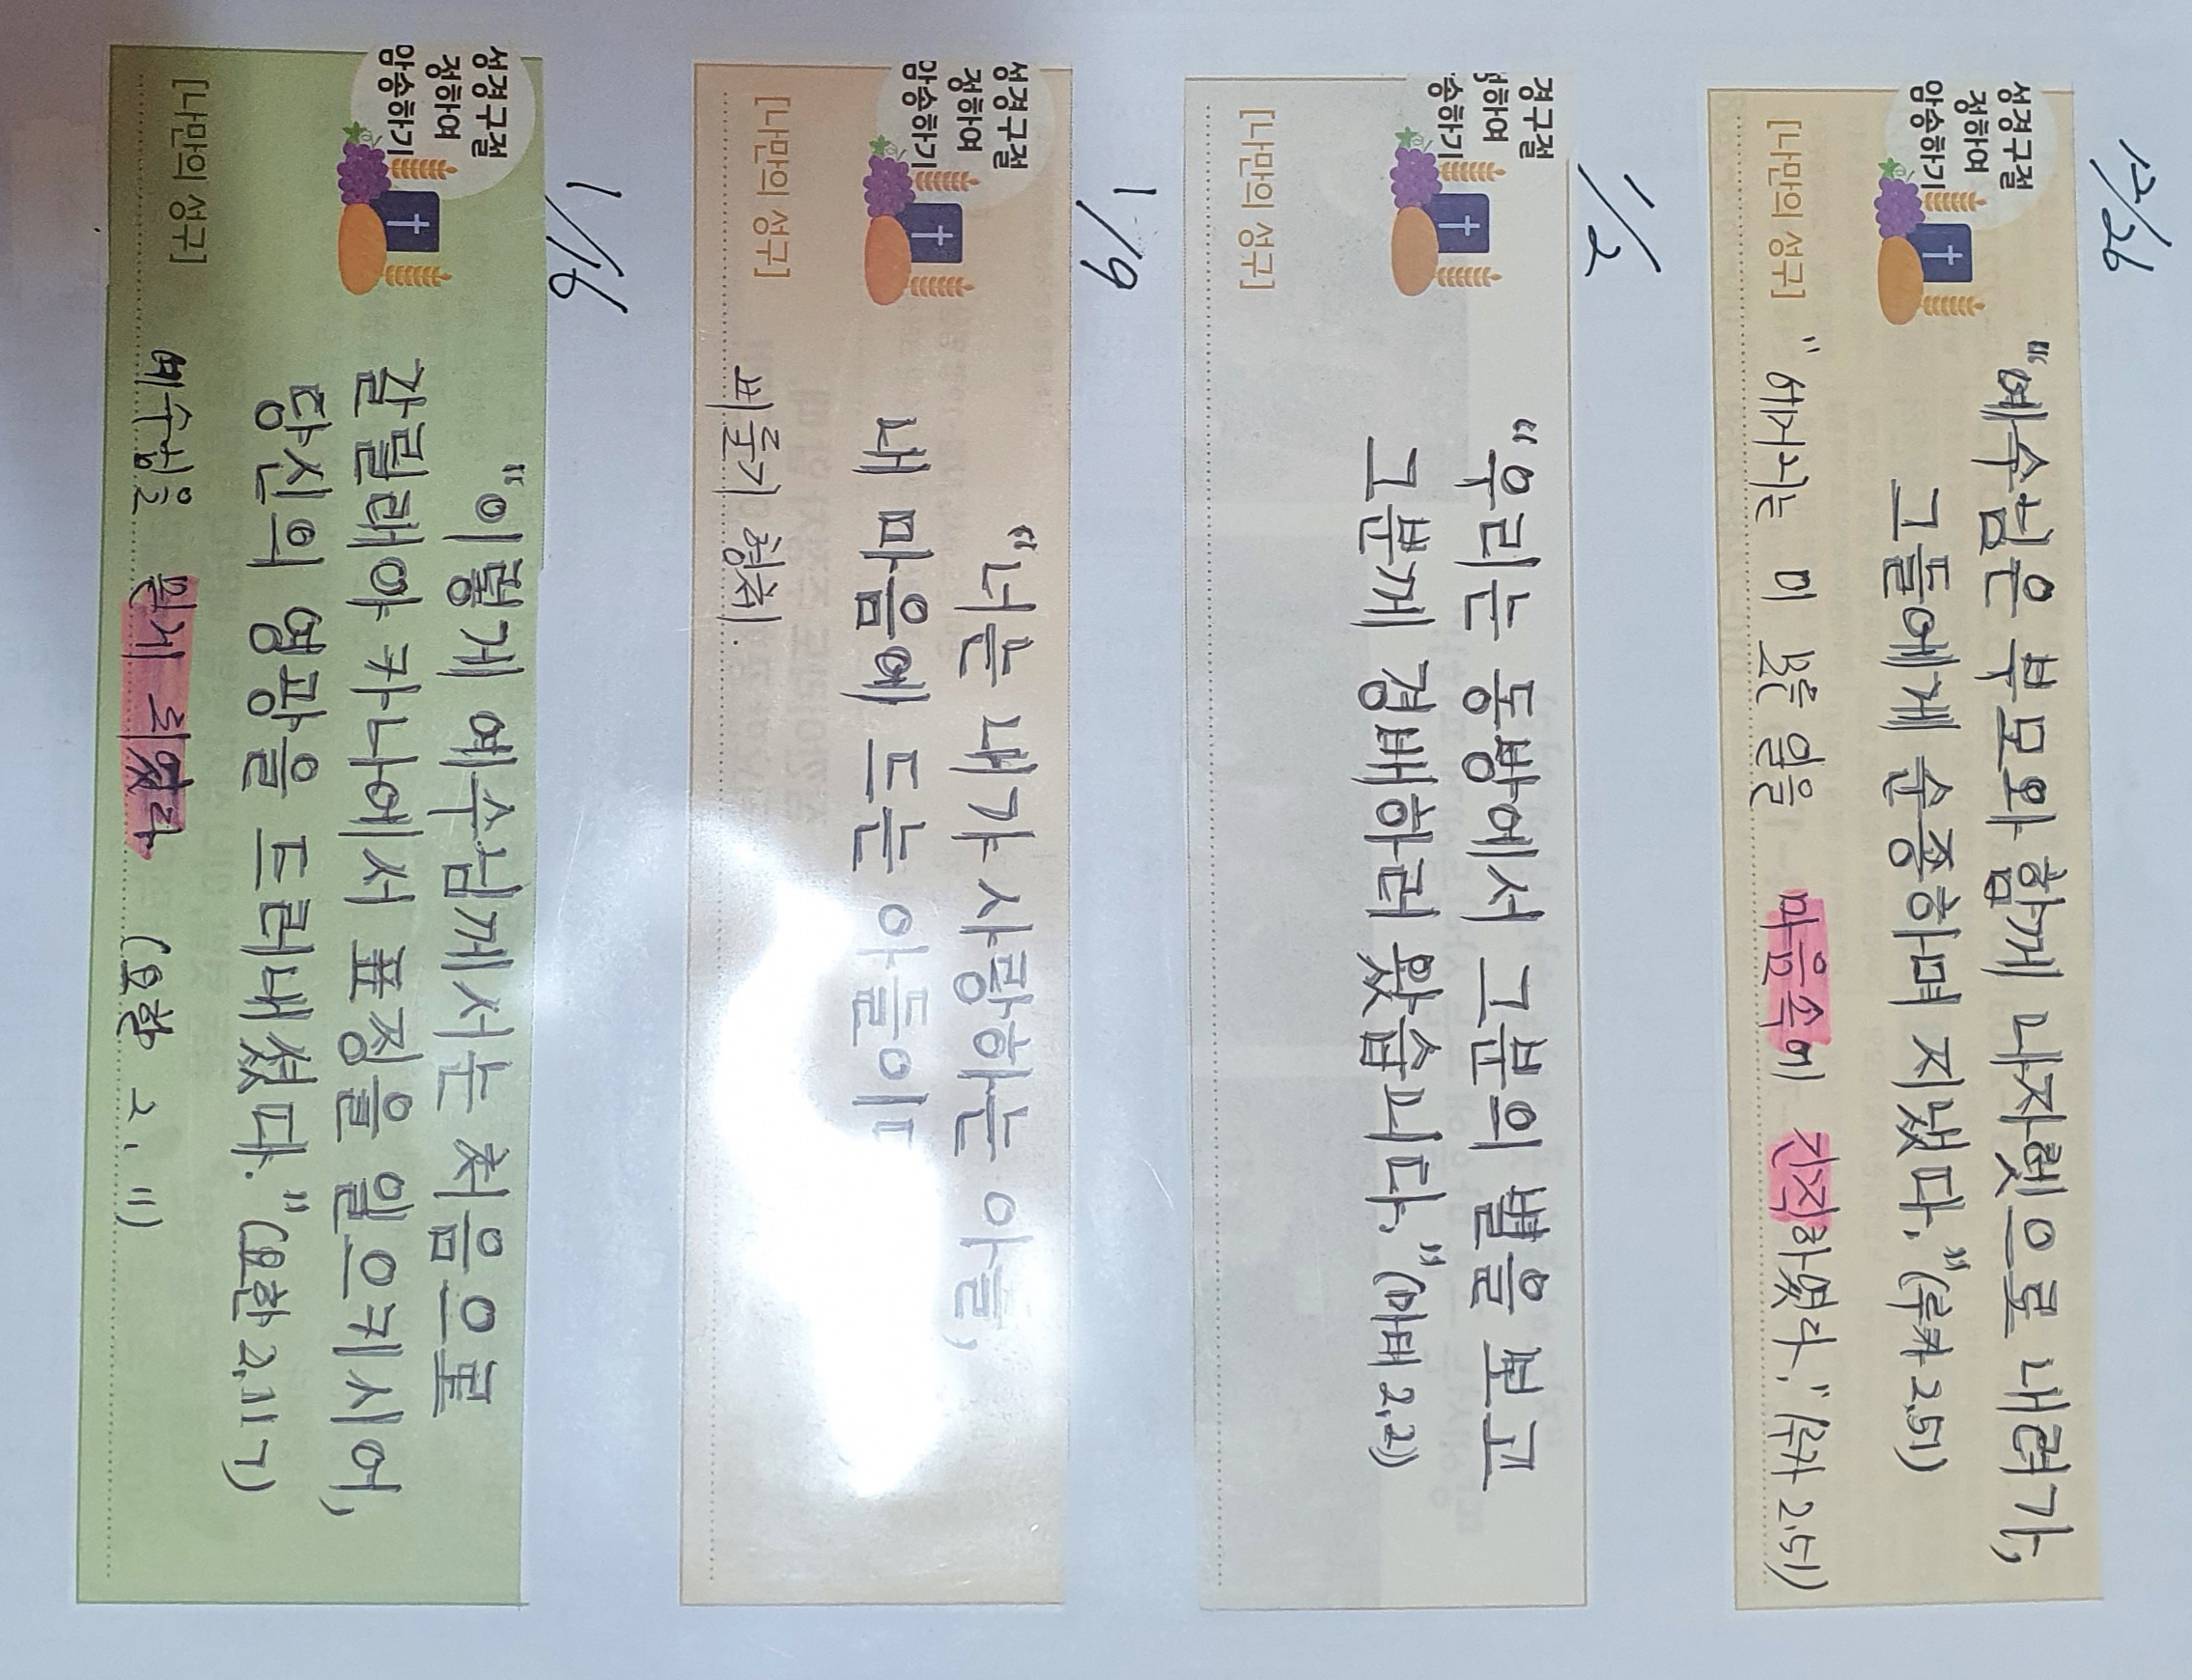 12/26
성경구절
정하여
암송하기
"예수님은 부모와 함께 나자렛으로 내려가,
그들에게 순종하며 지냈다." (루카 2,51)
[나만의 성구] " 어머니는 이 모든 일을 마음속에 간직하였다." (루카 2.51)
1/2
경구절
정하여
송하기
"우리는 동방에서 그분의 별을 보고
그분께 경배하러 왔습니다." (마태 2,2)
[나만의 성구]
1/9
성경구절
정하여
암송하기
"너는 내가 사랑하는 아들,
내 마음에 드는 아들이다
[나만의 성구]
1/16
성경구절
정하여
암송하기
"이렇게 예수님께서는 처음으로
갈릴래아 카나에서 표징을 일으키시어,
당신의 영광을 드러내셨다." (요한 2,11ㄱ)
[나만의 성구] 예수님은 (요한 2. 11)